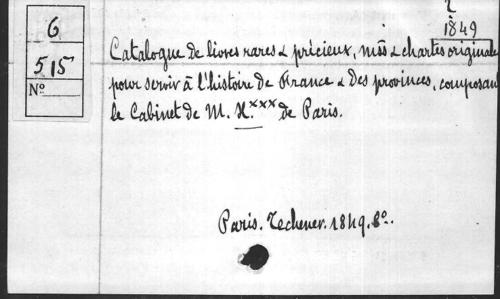 6
515
Nº
1849
Catalogue de livres rares & précieux, mss & chartes originale
pour servir à l'histoire de France & des provinces, composan
le Cabinet de M. N.xxx de Paris.
Paris. Techener. 1849. 8º.